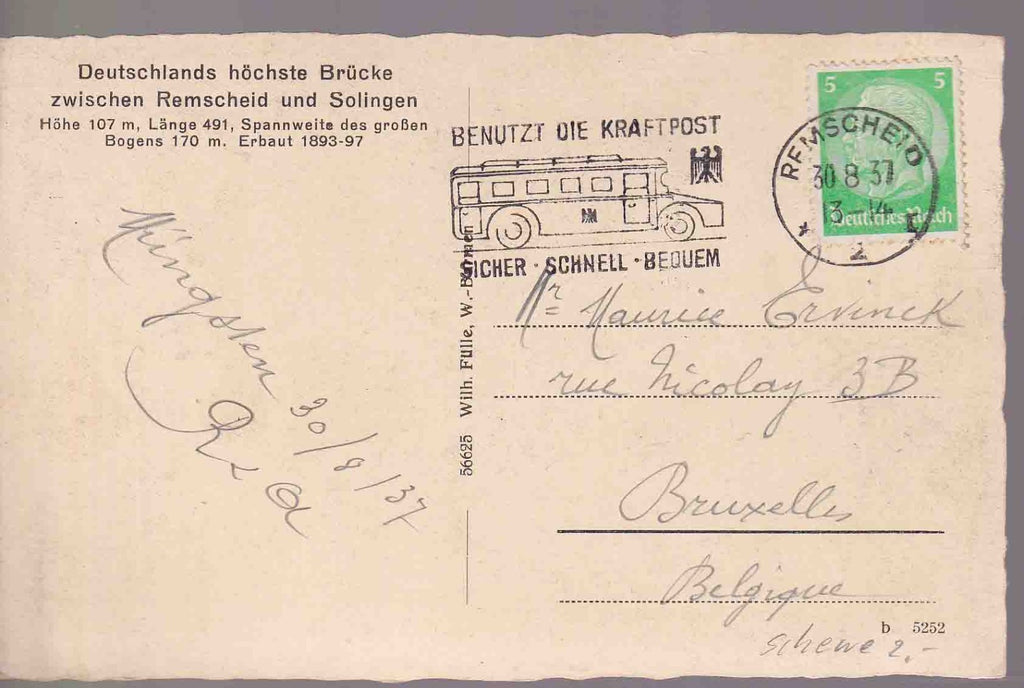 Deutschlands höchste Brücke
zwischen Remscheid und Solingen
Höhe 107 m, Länge 491, Spannweite des großen
Bogens 170 m. Erbaut 1893-97
Müngsten 30/8/37
56625 Wilh. Fülle, W.-Barmen
BENUTZT DIE KRAFTPOST
SICHER · SCHNELL · BEQUEM
5 5
Deutsches Reich
REMSCHEID
30 8 37
13-14
2
Mr Maurice Ervinck
rue Nicolay 3B
Bruxelles
Belgique
b 5252